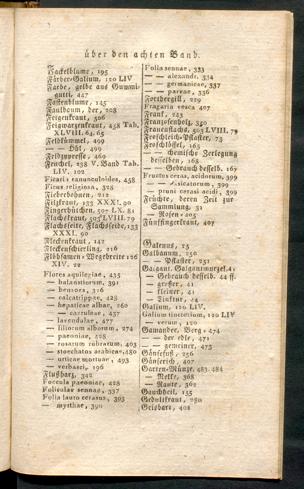 über den achten Band.
Fackelblume, 195
Färber-Galium, 120 LIV
Farbe, gelbe aus Gummi-
gutti, 447
Fastenblume, 145
Faulbaum, der, 208
Feigenkraut, 506
Feigwarzenkraut, 458 Tab.
XLVIII. 64. 65
Feldkümmel, 499
— — Hüt, 499
Feldzypresse, 469
Fenchel, 238 V. Band Tab.
LIV. 102
Ficaria ranunculoides, 458
Ficus religiosa, 328
Fieberbohnen, 212
Filzkraut, 133 XXXI. 90
Fingerhütchen, 50 LX. 81
Flachskraut, 505 LVIII. 79
Flachsseite, Flachsseide, 133
XXXI. 90
Fleckenkraut, 142
Fleckenschierling, 216
Flöhsamen-Wegebreite 126
XIV. 22
Flores aquilegiae, 435
— balaustiorum, 391
— benzoes, 316
— calcatrippae, 428
— hepaticae albae, 260
— — caeruleae, 437
— lavendulae, 477
— liliorum alborum, 274
— paeoniae, 428
— rosarum rubrarum, 403
— stoechatos arabicae, 480
— urticae mortuae, 493
— verbasci, 196
Flußharz, 342
Foecula paeoniae, 428
Foliculae sennae, 337
Folia lauro cerasus, 393
— myrthae, 390
Folia sennae, 333
— — alexandr. 334
— — germanicae, 337
— — parvae, 336
Forthergill, 229
Fragaria vesca 407
Frank, 243
Franzosenholz, 350
Frauenflachs, 505 LVIII. 79
Froschleich-Pflaster, 73
Froschlöffel, 165
— — chemische Zerlegung
desselben, 168
— — Gebrauch desselb. 167
Fructus ceras. acidorum, 399
— — Asiaticorum, 399
— — pruni cerasi acidi, 399
Früchte, deren Zeit zur
Sammlung, 31
— — Rosen- 405
Fünffingerkraut, 407
Galenus, 25
Galbanum, 250
— — Pflaster, 251
Galgant. Galgantwurzel, 41
— Gebrauch desselb. 44 ff.
— großer, 41
— kleiner, 41
— Tinktur, 44
Galium, 120 LIV.
Galium tinctorium, 120 LIV
— verum, 120
Gamander, Berg-, 474
— — der edle, 471
— — gemeiner, 473
Gänsefuß, 256
Gänserich, 407
Garten-Münze, 483. 484
— Nelke, 368
— Raute, 362
Gauchheil, 135
Geduldkraut, 280
Geisbart, 408